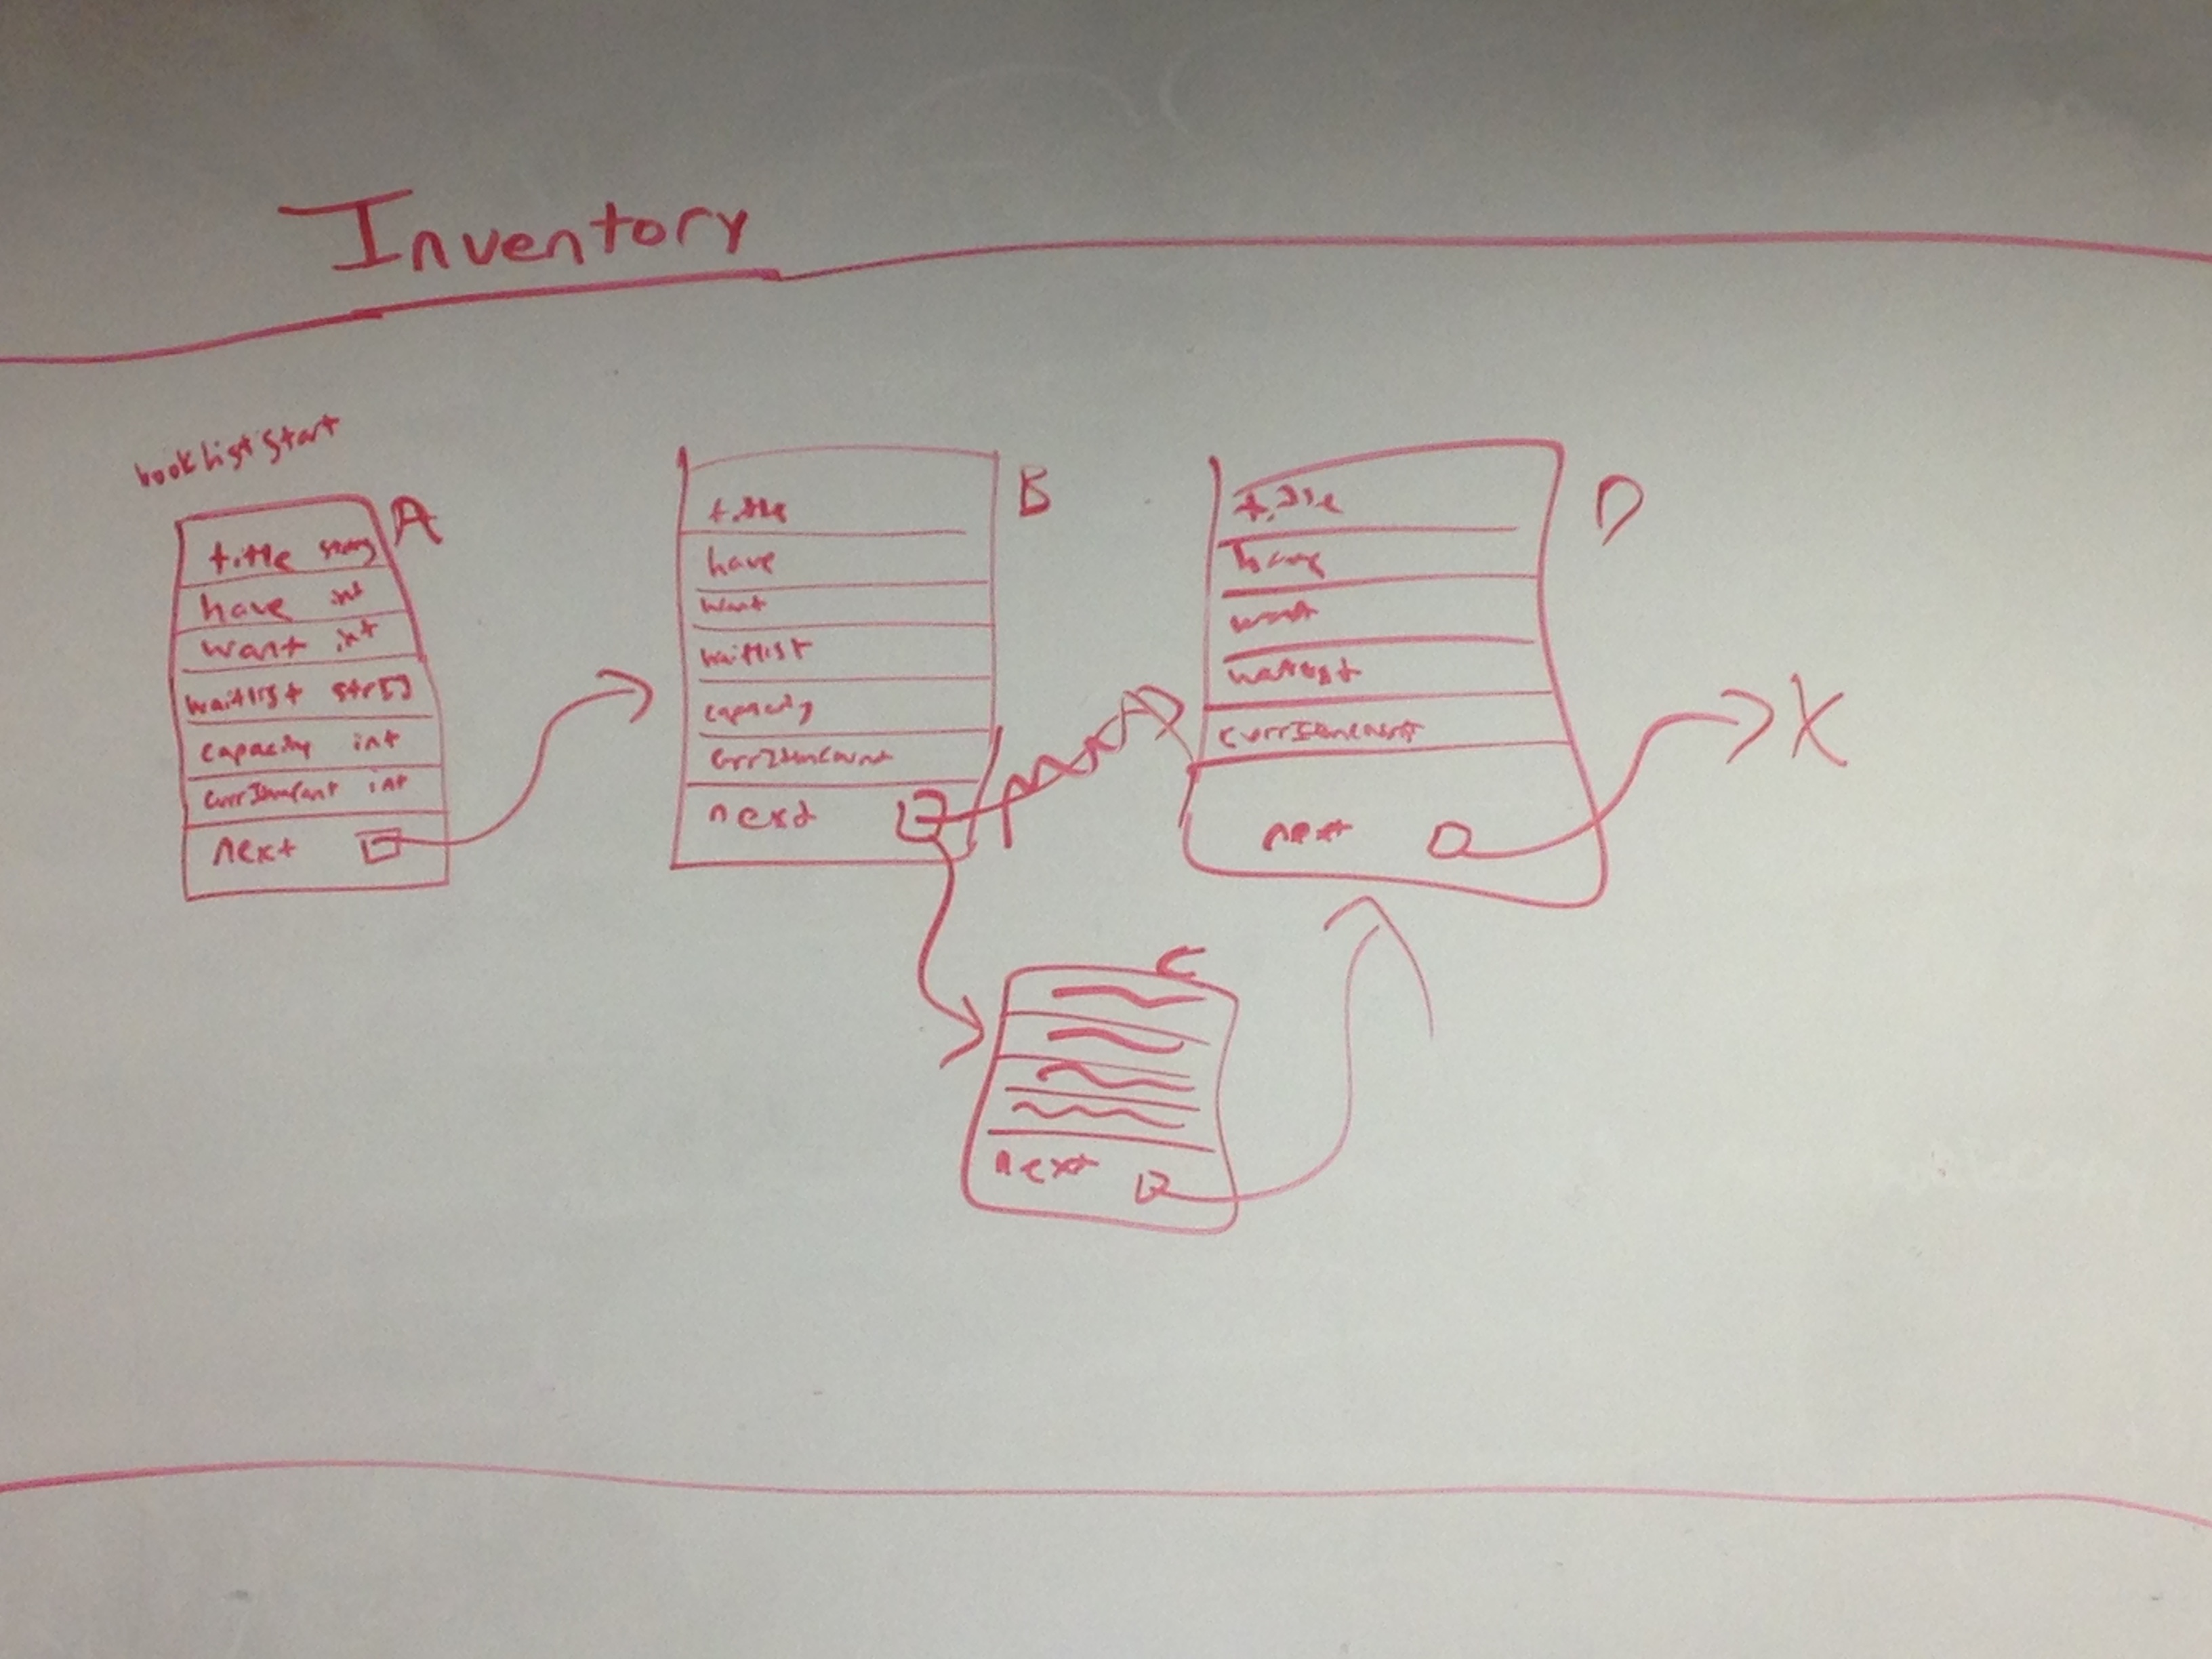 Inventory
booklist start
A
title string
have int
want int
waitlist str[]
capacity int
currItemCount int
next
B
title
have
want
waitlist
capacity
currItemCount
next
D
title
have
want
waitlist
currItemCount
next
X
C
next